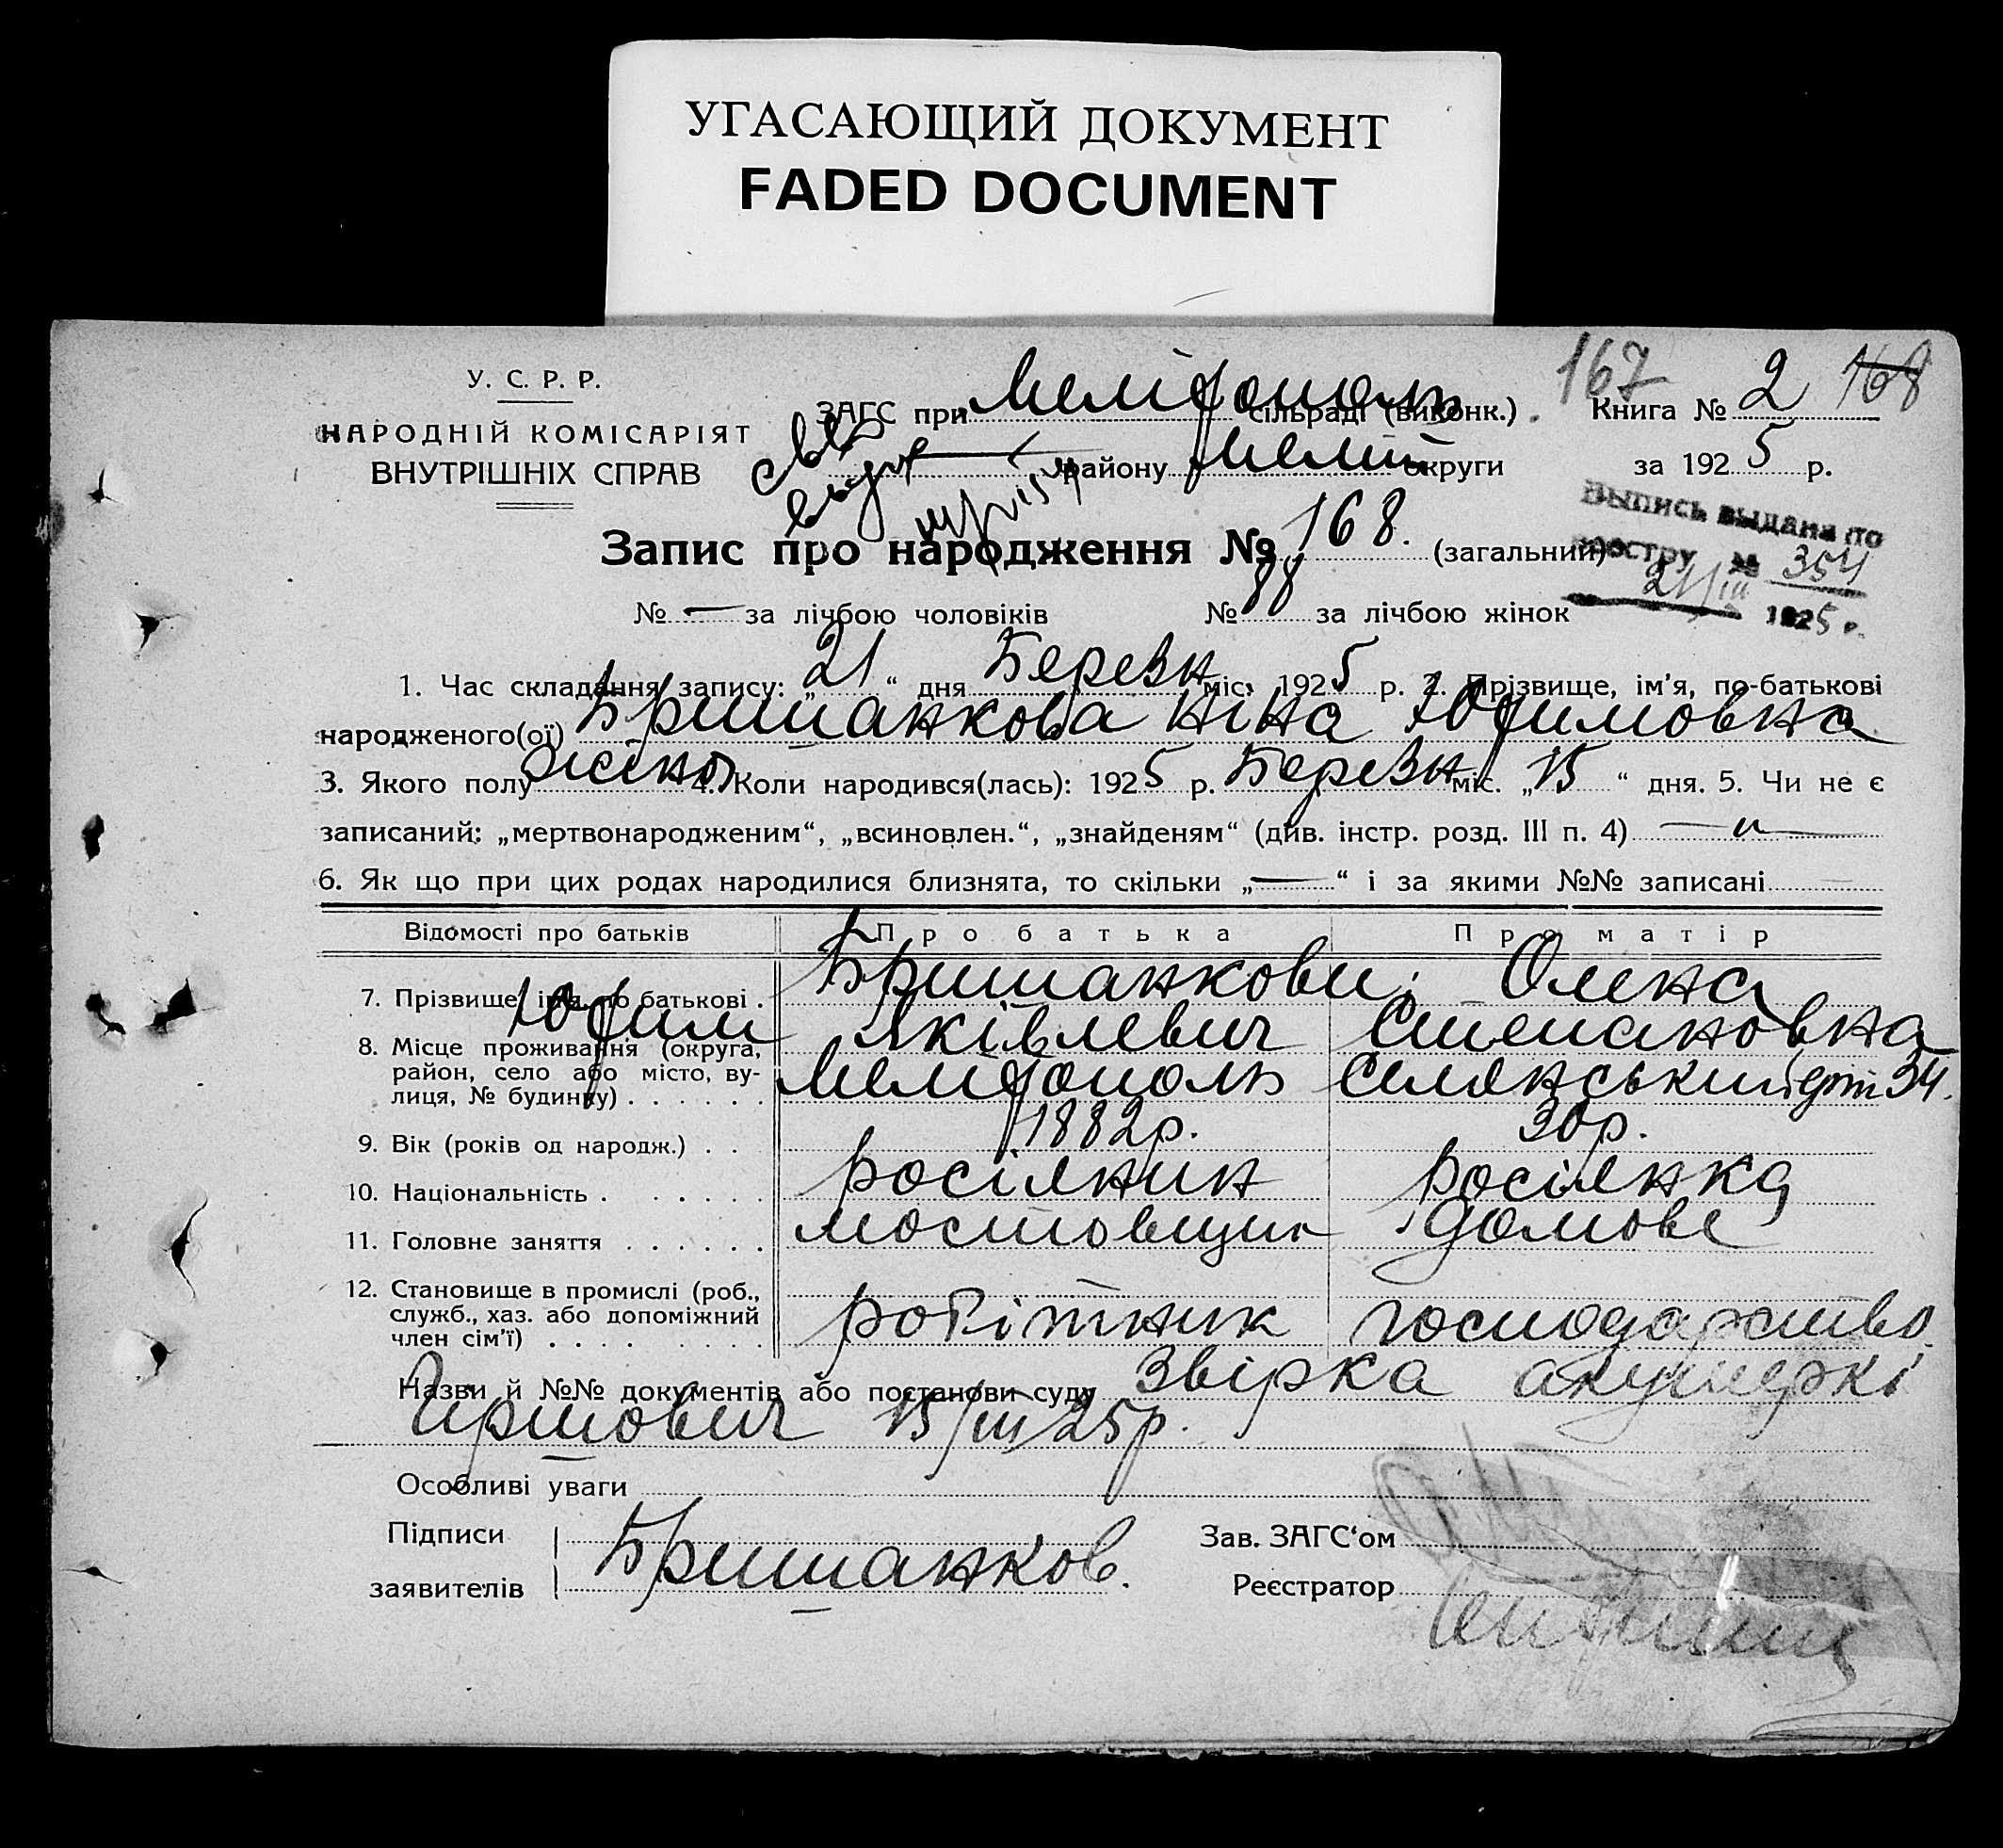 УГАСАЮЩИЙ ДОКУМЕНТ
FADED DOCUMENT
167 168
У. С. Р. Р.
НАРОДНІЙ КОМІСАРІЯТ
ВНУТРІШНІХ СПРАВ
ЗАГС при Мелітополь сільраді (виконк.)
району Меліт округи
Книга № 2
за 1925 р.
Выпись выдана по
реестру № 354
21/III 1925 г.
Запис про народження № 168. (загальний)
№ — за лічбою чоловіків № 88 за лічбою жінок
1. Час складання запису: „21“ дня Березн міс. 1925 р. 2. Прізвище, ім’я, по-батькові
народженого(ої) Бриманкова Ніна Юфимовна
3. Якого полу жіноч 4. Коли народився(лась): 1925 р. Березн міс. „15“ дня. 5. Чи не є
записаний: „мертвонародженим“, „всиновлен.“, „знайденям“ (див. інстр. розд. III п. 4)
6. Як що при цих родах народилися близнята, то скільки „—“ і за якими №№ записані
Відомості про батьків Про батька Про матір
7. Прізвище, ім’я, по батькові . Бриманкови; Олена
Юфим Яківлевич Степановна
8. Місце проживання (округа,
район, село або місто, ву-
лиця, № будинку) . . . . . . Мелітополь Селянський 34.
9. Вік (років од народж.) . . 1882р. 30р.
10. Національність . . . . . . росіянин росіянка
11. Головне заняття . . . . . . мостовщик домове
12. Становище в промислі (роб.,
служб., хаз. або допоміжний
член сім’ї) . . . . . . . . робітник господарство
Назви й №№ документів або постанови суду Звірка акушеркі
15/III 25р.
Особливі уваги
Підписи
заявителів Бриманков.
Зав. ЗАГС‘ом
Реєстратор